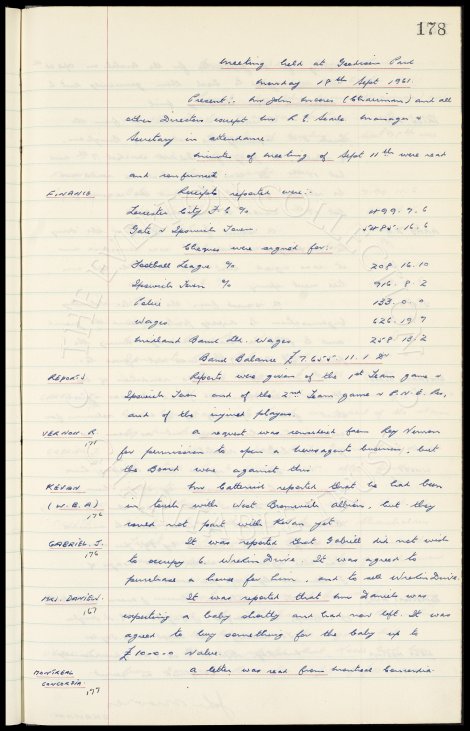 178
Meeting held at Goodison Park
Monday 18th Sept 1961.
Present:- Mr John Moores (Chairman) and all
other Directors except Mr R. E. Searle. Manager &
Secretary in attendance.
Minutes of meeting of Sept 11th were read
and confirmed.
FINANCE
Receipts reported were:-
Leicester City F.C. %
499. 9. 6
Gate v Ipswich Town.
5485. 16. 6
Cheques were signed for:-
Football League %
208. 16. 10
Ipswich Town %
916. 8. 2
Police
133. 0. 0
Wages
626. 19. 7
Midland Bank Ltd. Wages.
258. 13. 2
Bank Balance £7655. 11. 1
REPORTS
Reports were given of the 1st Team game v
Ipswich Town and of the 2nd Team game v P.N.E. Res,
and of the injured players.
VERNON. R
171
A request was received from Roy Vernon
for permission to open a newsagents business, but
the Board were against this
KEVAN
(W.B.A)
176
Mr Catterick reported that he had been
in touch with West Bromwich Albion, but they
would not part with Kevan yet.
GABRIEL. J.
176
It was reported that Gabriel did not wish
to occupy 6. Wrekin Drive. It was agreed to
purchase a house for him, and to sell Wrekin Drive.
MRS. DANIELS.
167
It was reported that Mrs Daniels was
expecting a baby shortly and had now left. It was
agreed to buy something for the baby up to
£10-0-0 value.
MONTREAL
CONCORDIA
177
A letter was read from Montreal Concordia